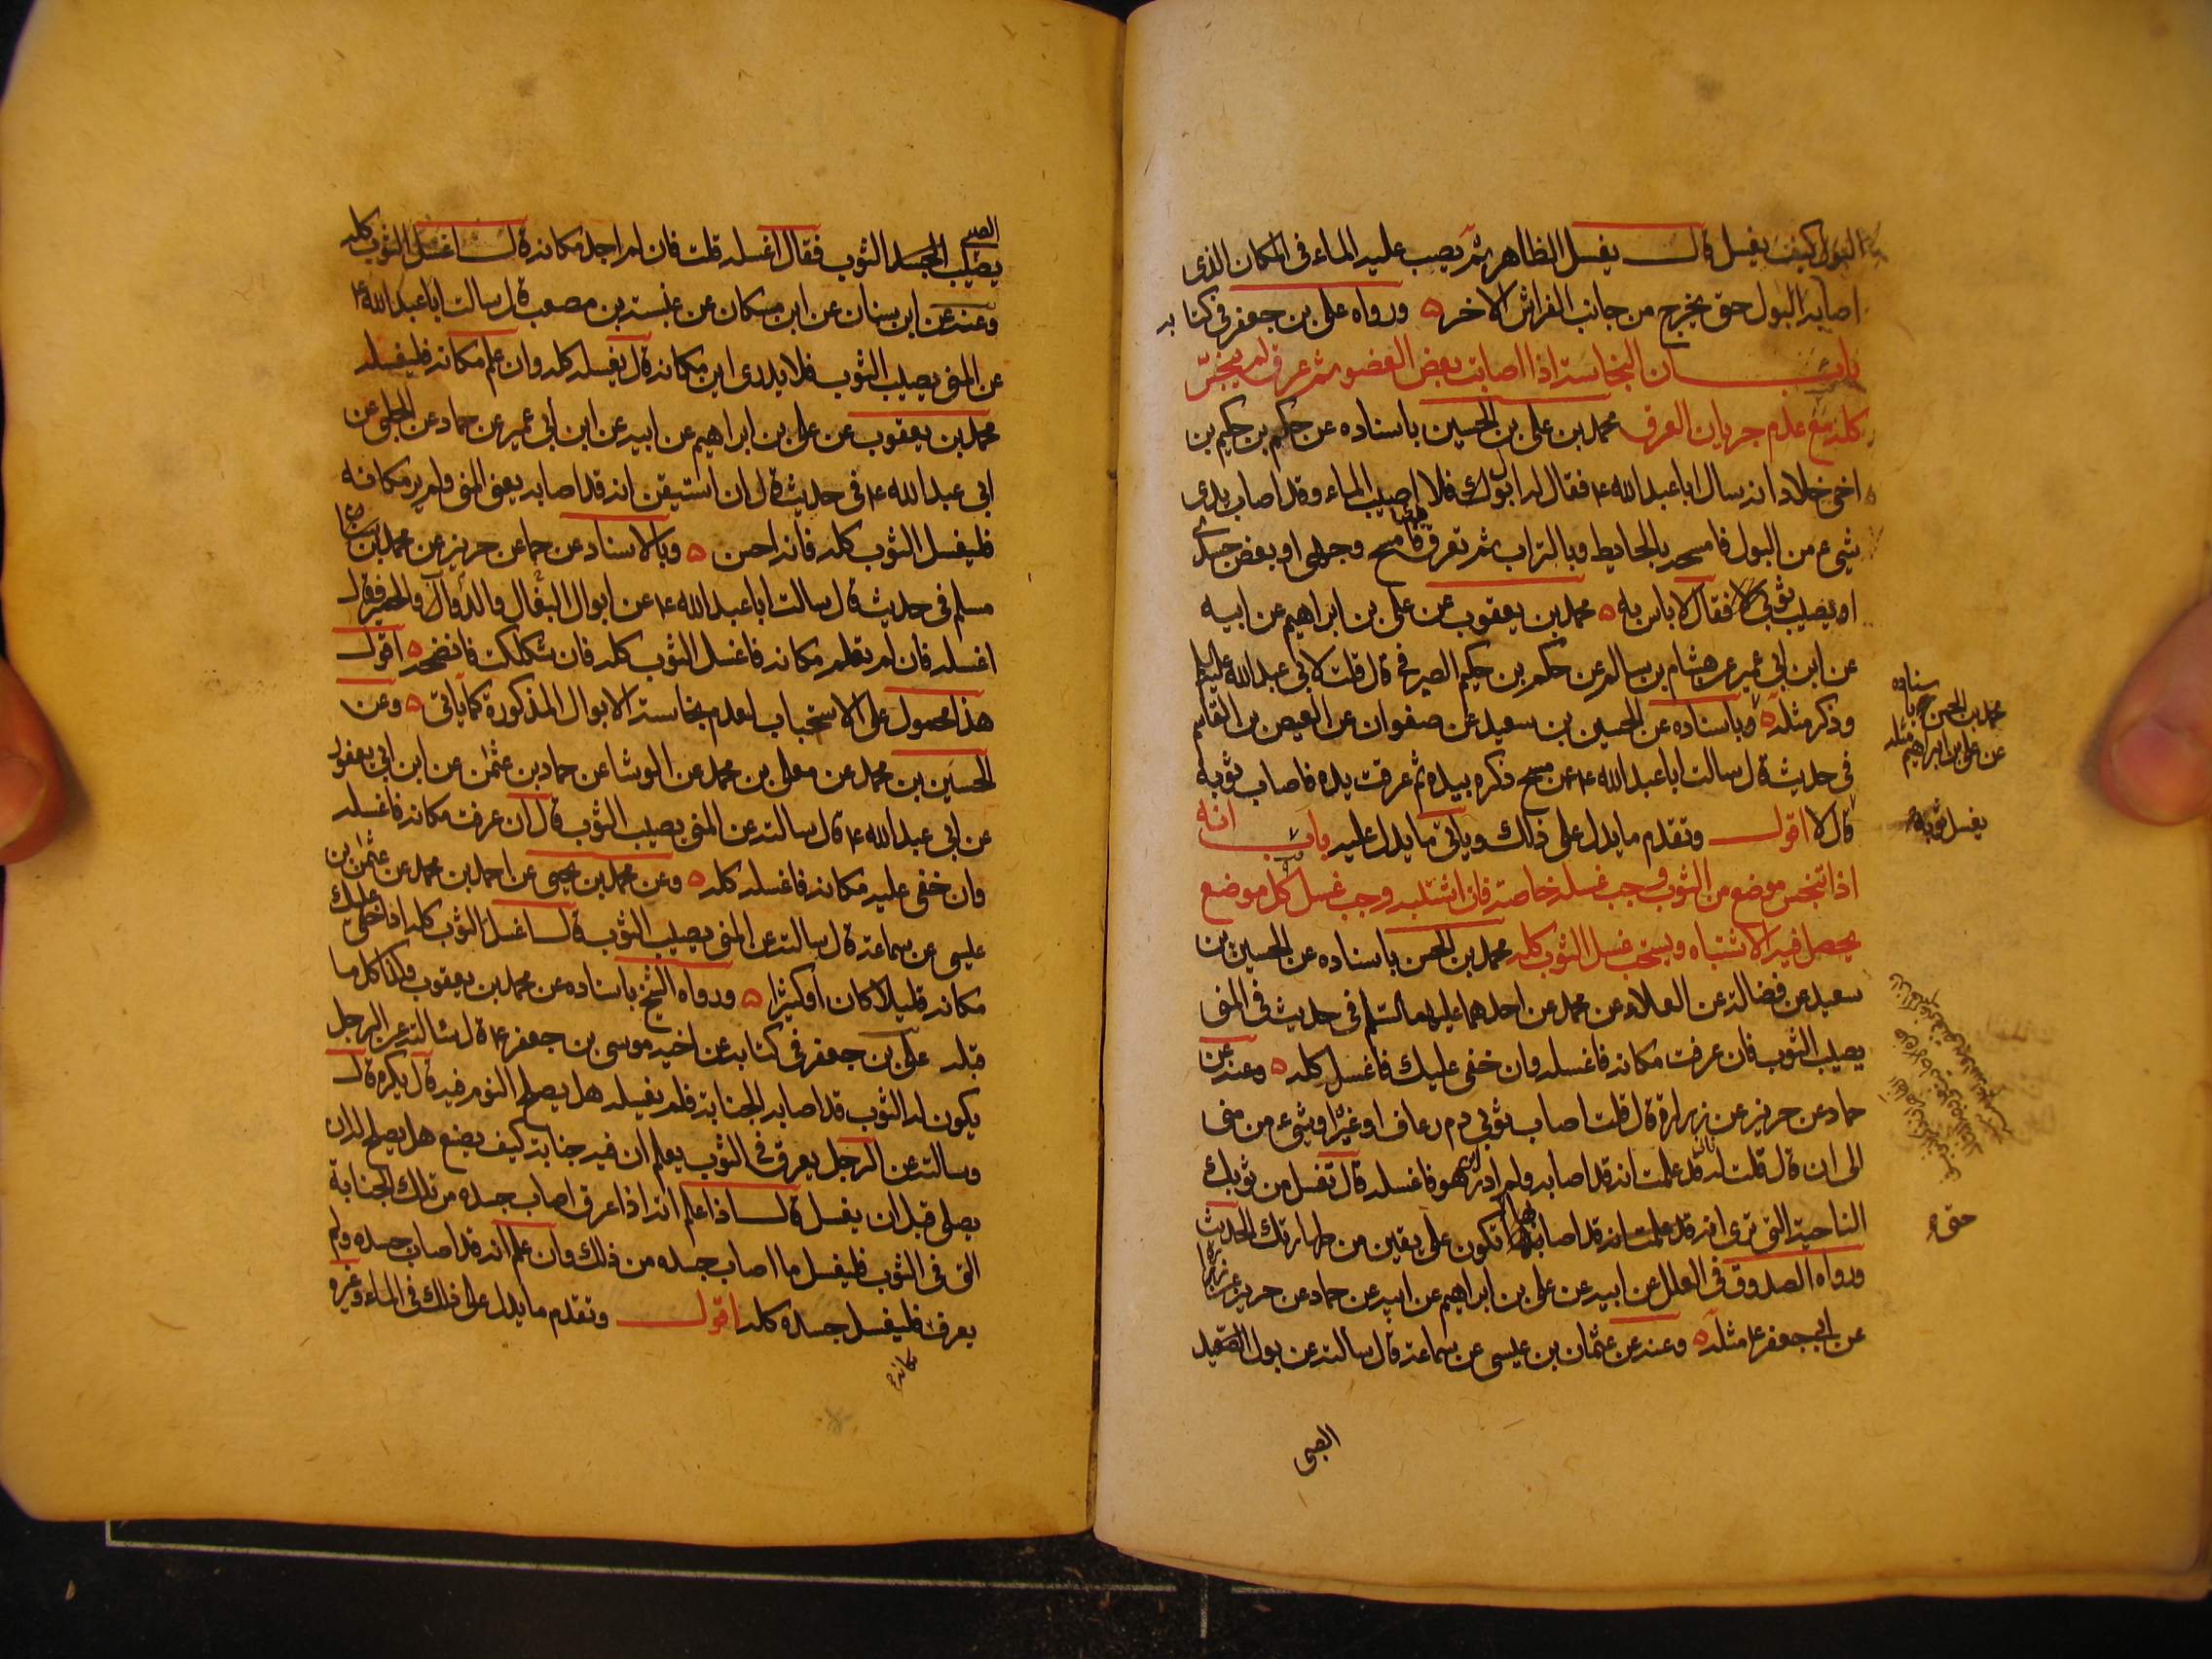 البول كيف يغسل قال يغسل الظاهر ثم يصب عليه الماء في المكان الذي
اصابه البول حتى يخرج من جانب الفراش الاخر ورواه علي بن جعفر في كتابه
باب ان النجاسة اذا اصابت بعض العضو ثم عرق لم ينجس
كله مع عدم جريان العرق محمد بن علي بن الحسين باسناده عن حكم بن حكيم بن
اخي خلاد انه سال ابا عبد الله ع فقال له ابول فلا اصيب الماء وقد اصاب يدي
شيء من البول فامسحه بالحايط وبالتراب ثم تعرق يدي فامسح وجهي او بعض جسدي
او يصيب ثوبي فقال لا باس به محمد بن يعقوب عن علي بن ابراهيم عن ابيه
عن ابن ابي عمير عن هشام بن سالم عن حكم بن حكيم الصيرفي قال قلت لابي عبد الله عليه السلام
وذكر مثله وباسناده عن الحسين بن سعيد عن صفوان عن العيص بن القاسم
في حديث قال سالت ابا عبد الله ع عمن مسح ذكره بيده ثم عرقت يده فاصاب ثوبه
قال لا اقول وتقدم ما يدل على ذلك وياتي ما يدل عليه باب انه
اذا تنجس موضع من الثوب وجب غسله خاصة فان اشتبه وجب غسل كل موضع
يحصل فيه الاشتباه ويستحب غسل الثوب كله محمد بن الحسن باسناده عن الحسين بن
سعيد عن فضالة عن العلاء عن محمد عن احدهما عليهما السلام في حديث في المني
يصيب الثوب فان عرفت مكانه فاغسله وان خفي عليك فاغسل كله وعنه عن
حماد عن حريز عن زرارة قال قلت اصاب ثوبي دم رعاف او غيره او شيء من مني
الى ان قال قلت فاني قد علمت انه قد اصابه ولم ادر اين هو فاغسله قال تغسل من ثوبك
الناحية التي ترى انه قد اصابها حتى تكون على يقين من طهارتك الحديث
ورواه الصدوق في العلل عن ابيه عن علي بن ابراهيم عن ابيه عن حماد عن حريز عن زرارة
عن ابي جعفر ع مثله وعنه عن عثمان بن عيسى عن سماعة قال سالته عن بول الصبي
محمد بن الحسن باسناده
عن علي بن ابراهيم مثله
يغسل ثوبه
حتى
الصبي
يصيب الجسد الثوب فقال اغسله قلت فان لم اجد مكانه قال اغسل الثوب كله
وعنه عن ابن سنان عن ابن مسكان عن عنبسة بن مصعب قال سالت ابا عبد الله ع
عن المني يصيب الثوب فلا يدري اين مكانه قال يغسله كله وان علم مكانه فليغسله
محمد بن يعقوب عن علي بن ابراهيم عن ابيه عن ابن ابي عمير عن حماد عن الحلبي عن
ابي عبد الله ع في حديث قال ان استيقن انه قد اصابه يعني المني ولم ير مكانه
فليغسل الثوب كله فانه احسن وبالاسناد عن حماد عن حريز عن محمد بن
مسلم في حديث قال سالت ابا عبد الله ع عن ابوال البغال والدواب والحمير فقال
اغسله فان لم تعلم مكانه فاغسل الثوب كله فان شككت فانضحه اقول
هذا محمول على الاستحباب لعدم نجاسة الابوال المذكورة كما ياتي وعن
الحسين بن محمد عن معلى بن محمد عن الوشا عن حماد بن عثمان عن ابن ابي يعفور
عن ابي عبد الله ع قال سالته عن المني يصيب الثوب قال ان عرفت مكانه فاغسله
وان خفي عليه مكانه فاغسله كله وعن محمد بن يحيى عن احمد بن محمد عن عثمان بن
عيسى عن سماعة قال سالته عن المني يصيب الثوب قال اغسل الثوب كله اذا خفي عليك
مكانه قليلا كان او كثيرا ورواه الشيخ باسناده عن محمد بن يعقوب وكذا كل ما
قبله علي بن جعفر في كتابه عن اخيه موسى بن جعفر ع قال سالته عن الرجل
يكون له الثوب قد اصابه الجنابة فلم يغسله هل يصلح النوم فيه قال يكره قال
وسالته عن الرجل يعرق في الثوب يعلم ان فيه جنابة كيف يصنع هل يصلح له ان
يصلي قبل ان يغسل قال اذا علم انه اذا عرق اصاب جسده من تلك الجنابة
التي في الثوب فليغسل ما اصاب جسده من ذلك وان علم انه قد اصاب جسده ولم
يعرف فليغسل جسده كله اقول وتقدم ما يدل على ذلك في الماء وغيره
مكانه